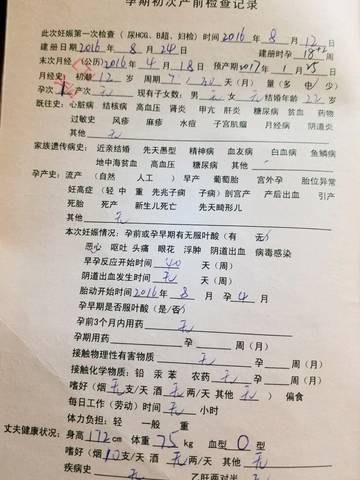 孕期初次产前检查记录
此次妊娠第一次检查（尿HCG、B超、妇检）时间2016年8月12日
建册日期2016年8月24日 建册时孕18+2周
末次月经（公历）2016年4月18日 预产期2017年1月25日
月经史：初潮12岁 周期7/30天（月） 量（多 中 少）
孕次1产次无 现有子女数：男无女无结婚年龄22岁
既往史：心脏病 结核病 高血压 肾炎 甲亢 肝炎 糖尿病 贫血 药物
过敏史 风疹 麻疹 水痘 子宫肌瘤 月经病 阴道炎
其他无
家族遗传病史：近亲结婚 先天愚型 精神病 血友病 白血病 鱼鳞病
地中海贫血 高血压 糖尿病 其他无
孕产史：流产（自然 人工 ）早产 葡萄胎 宫外孕 胎位异常
妊高症（轻 中 重 先兆子痫 子痫）剖宫产 产后出血 引产
死胎 死产 新生儿死亡 先天畸形儿
其他无
本次妊娠情况：孕前或孕早期有无服叶酸（有 无）
恶心 呕吐 头痛 眼花 浮肿 阴道出血 病毒感染
早孕反应开始时间40天（周）
阴道出血发生时间无天（周）
胎动开始时间2016年8月孕4月
孕早期是否服叶酸（是/否）
孕前3个月内用药无
孕期用药 孕 周（月）
接触物理性有害物质无孕 周（月）
接触化学物质：铅 汞 苯 农药无孕 周（月）
嗜好（烟无支/天 酒无两/天 其他无）偏食
每日工作（劳动）时间无小时
体力负担：轻 一般 重
丈夫健康状况：身高172cm 体重75kg 血型O型
嗜好（烟10支/天 酒无两/天 其他无）
疾病史 乙肝两对半